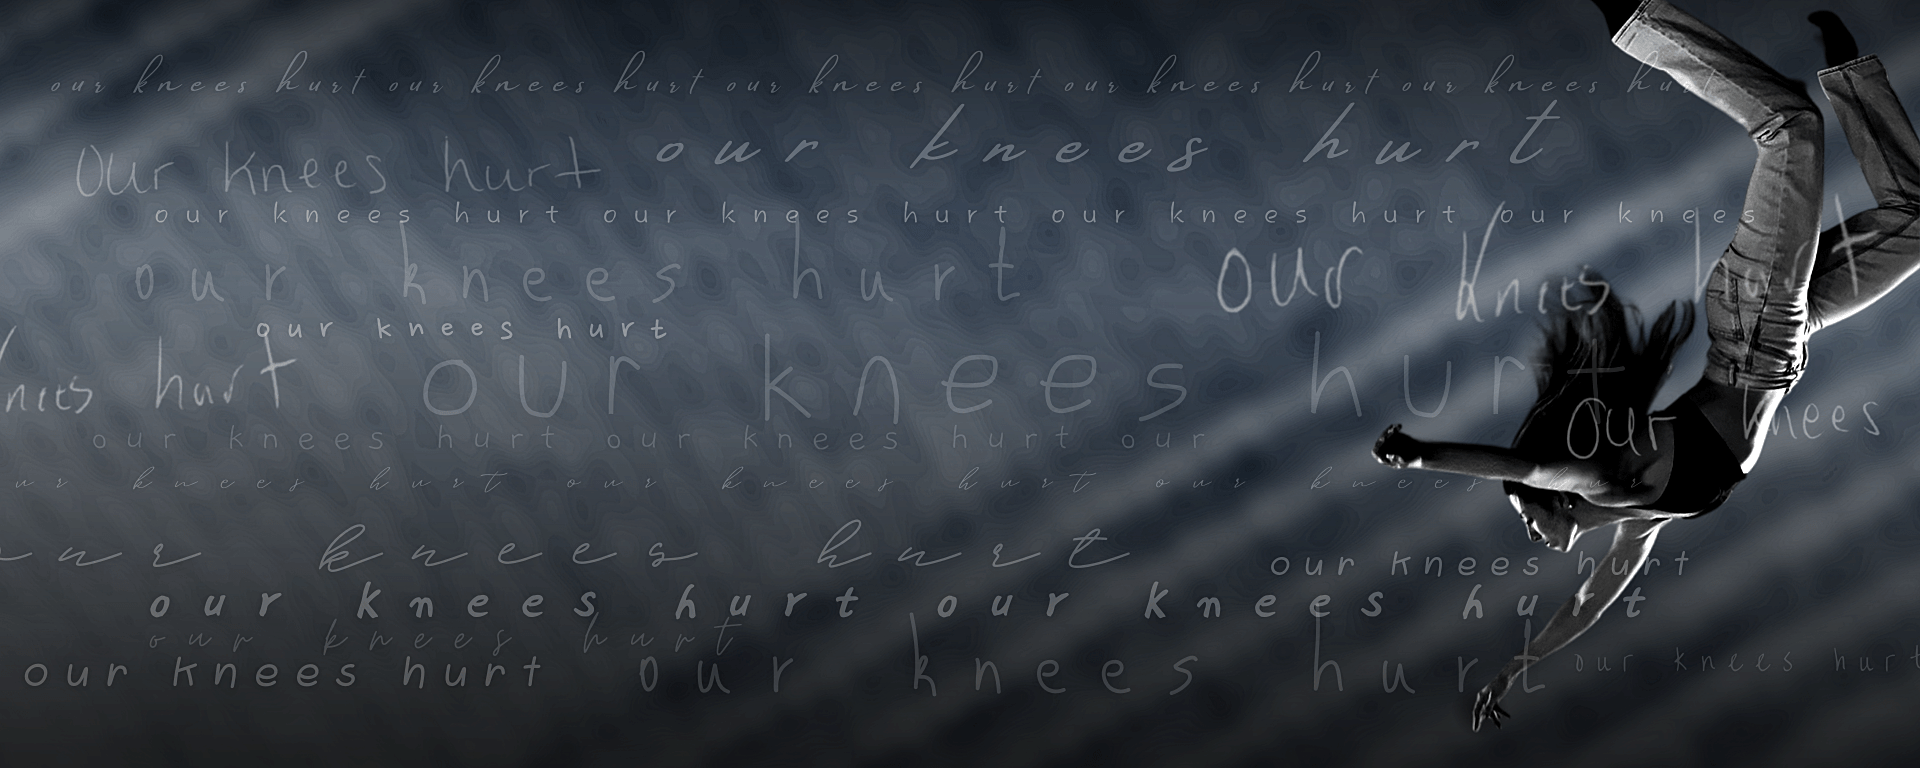 our knees hurt our knees hurt our knees hurt our knees hurt our knees hurt
our knees hurt
our knees hurt
our knees hurt our knees hurt our knees hurt our knees
our knees hurt
our knees hurt
our knees hurt
knees hurt
our knees hurt
our knees
our knees hurt our knees hurt our
our knees hurt our knees hurt our knees hurt
our knees hurt
our knees hurt
our knees hurt our knees hurt
our knees hurt
our knees hurt
our knees hurt
our knees hurt